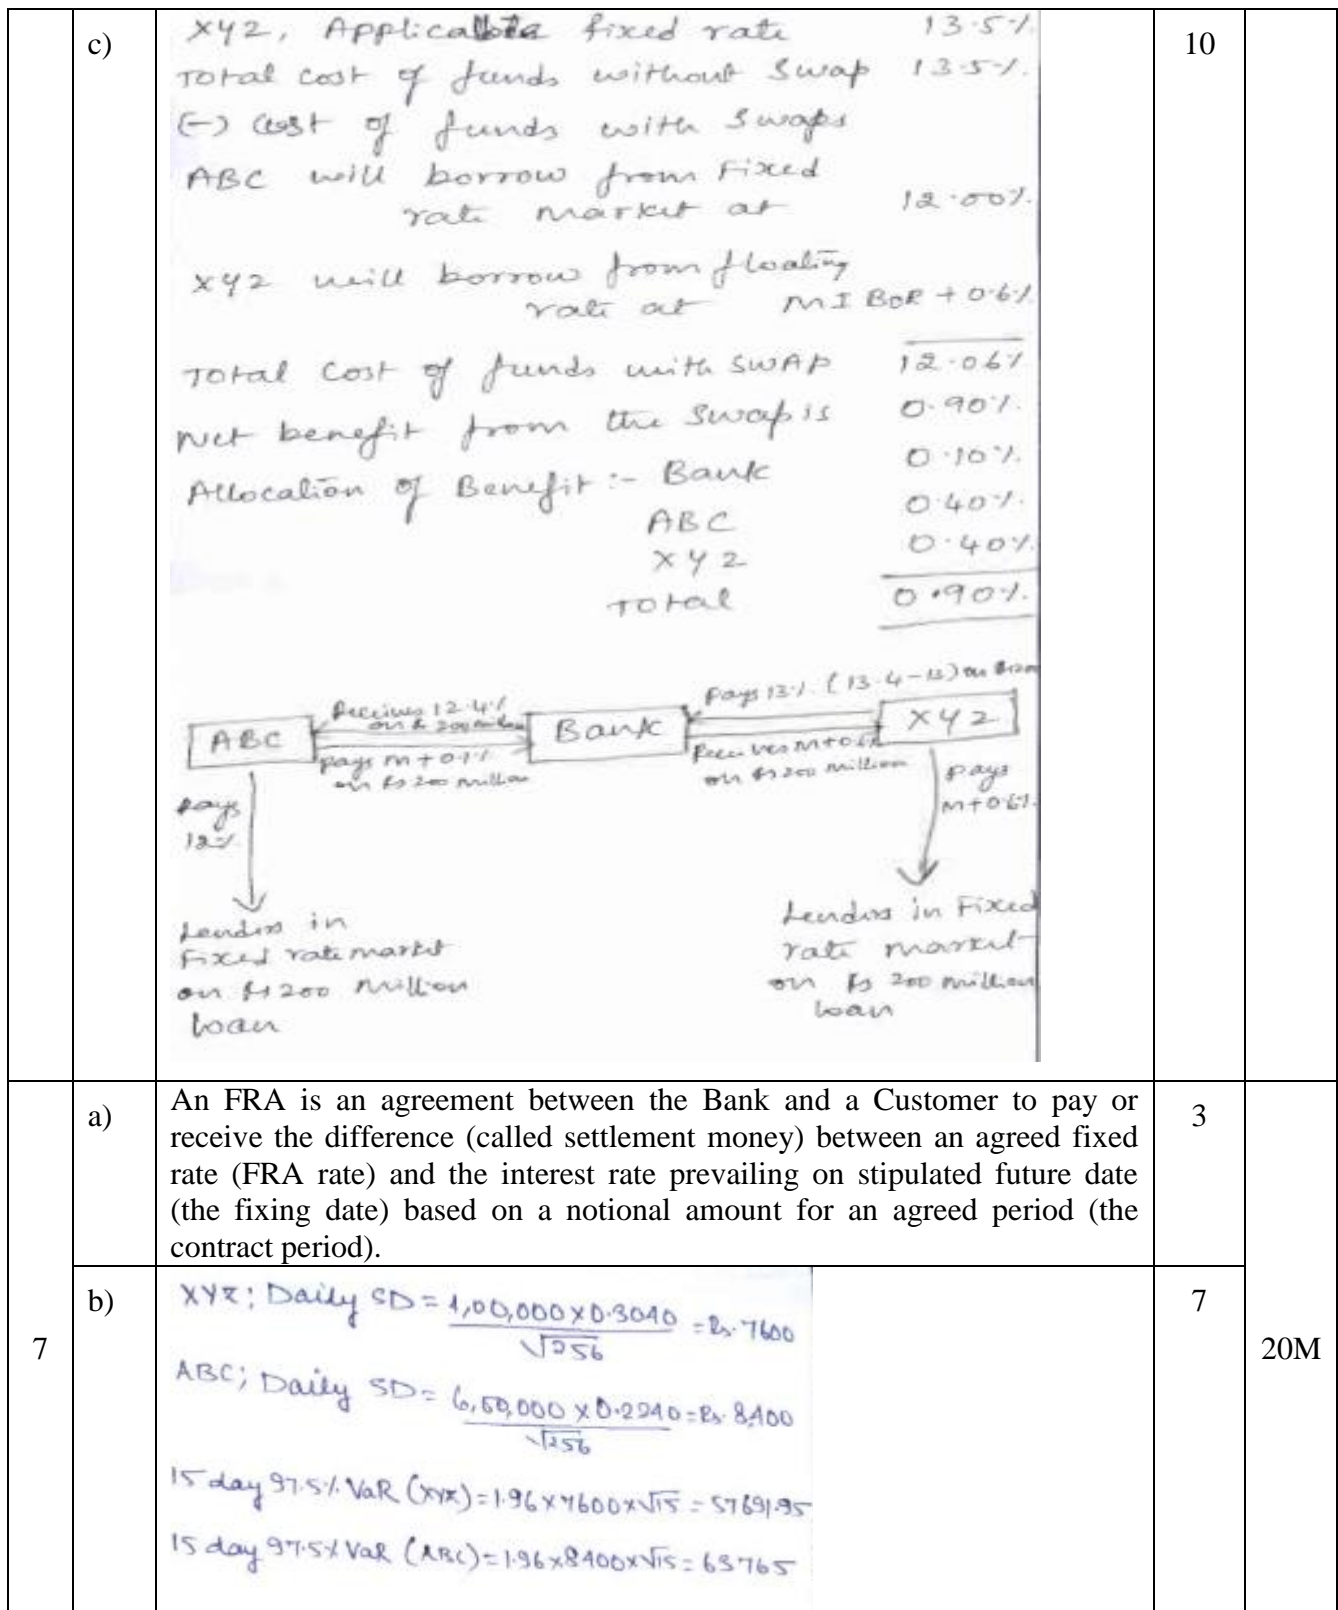 c)
XYZ, Applicable fixed rate 13.5%
10
Total cost of funds without swap 13.5%.
(-) Cost of funds with swaps
ABC will borrow from Fixed
rate market at 12.00%.
XYZ will borrow from floating
rate at MIBOR + 0.6%
Total Cost of funds with SWAP 12.06%
Net benefit from the swap is 0.90%.
Allocation of Benefit :- Bank 0.10%.
ABC 0.40%.
XYZ 0.40%.
Total 0.90%.
Receives 12.4%
on Rs 200 million
Pays 13%. (13.4-13) on
ABC
Bank
XYZ
pays m+0.1%
on Rs 200 million
Receives m+0.6%
on Rs 200 million
pays
12%
pays
m+0.6%.
Lenders in
Fixed rate market
on Rs 200 million
loan
Lenders in Fixed
rate market
on Rs 200 million
loan
7
a)
An FRA is an agreement between the Bank and a Customer to pay or
receive the difference (called settlement money) between an agreed fixed
rate (FRA rate) and the interest rate prevailing on stipulated future date
(the fixing date) based on a notional amount for an agreed period (the
contract period).
3
20M
b)
XYZ; Daily SD = 4,00,000 x 0.3040 / √256 = Rs. 7600
7
ABC; Daily SD = 6,00,000 x 0.2240 / √256 = Rs. 8,400
15 day 97.5% VaR (XYZ) = 1.96 x 7600 x √15 = 57691.95
15 day 97.5% VaR (ABC) = 1.96 x 8400 x √15 = 63765